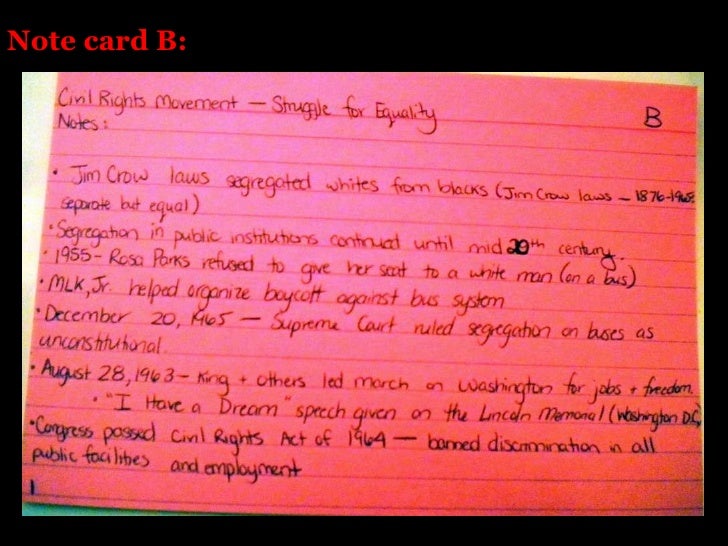 Note card B:
Civil Rights Movement — Struggle for Equality
B
Notes:
• Jim Crow laws segregated whites from blacks (Jim Crow laws — 1876-1965:
separate but equal)
• Segregation in public institutions continued until mid 20th century.
• 1955 - Rosa Parks refused to give her seat to a white man (on a bus)
• MLK, Jr. helped organize boycott against bus system
• December 20, 1965 — Supreme Court ruled segregation on buses as
unconstitutional.
• August 28, 1963 - King + others led march on Washington for jobs + freedom.
• "I Have a Dream" speech given on the Lincoln Memorial (Washington DC)
• Congress passed Civil Rights Act of 1964 — banned discrimination in all
public facilities and employment